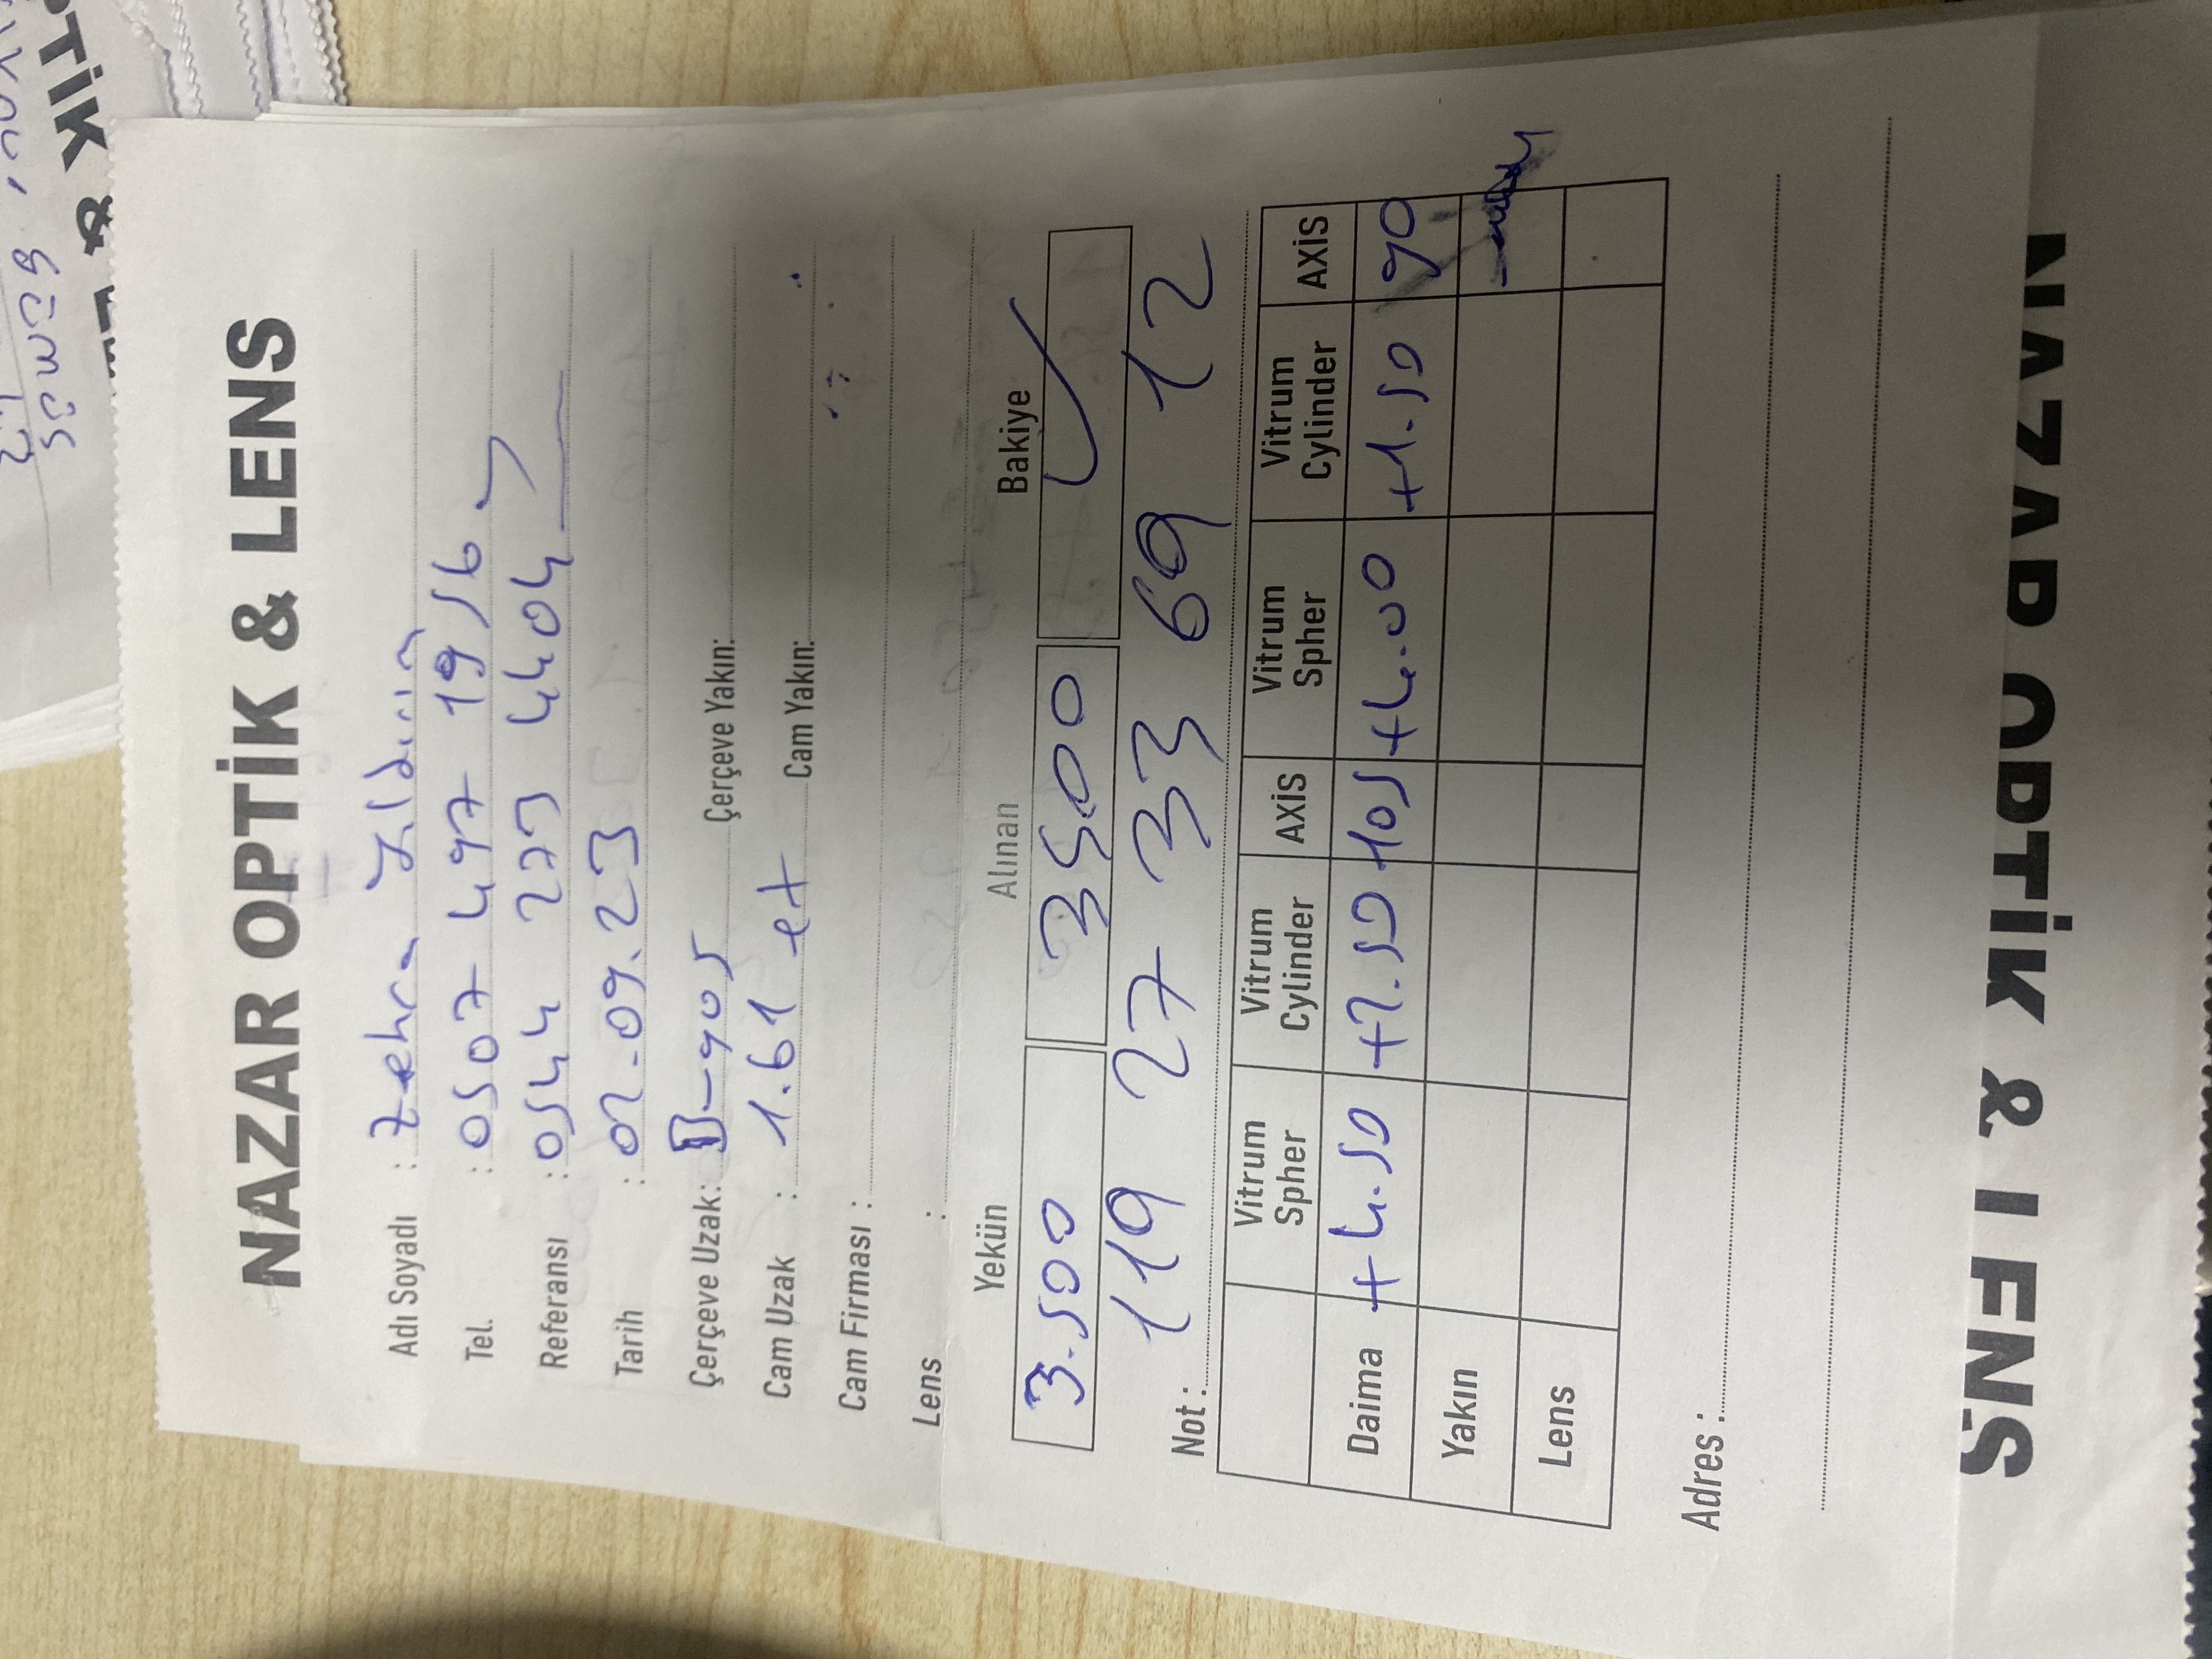 NAZAR OPTİK & LENS
Adı Soyadı : Zehra Yıldırım
Tel. : 0507 497 1956
Referansı : 0544 273 4404
Tarih : 02.09.23
Çerçeve Uzak: B-905 Çerçeve Yakın:
Cam Uzak : 1.61 et Cam Yakın:
Cam Firması :
Lens :
Yekün Alınan Bakiye
3.500 3500 ✓
Not : 119 27 33 69 12
Vitrum Spher Vitrum Cylinder AXİS Vitrum Spher Vitrum Cylinder AXİS
Daima +4.50 +2.50 105 +4.00 +1.50 90
Yakın
Lens
Adres :
NAZAR OPTİK & LENS